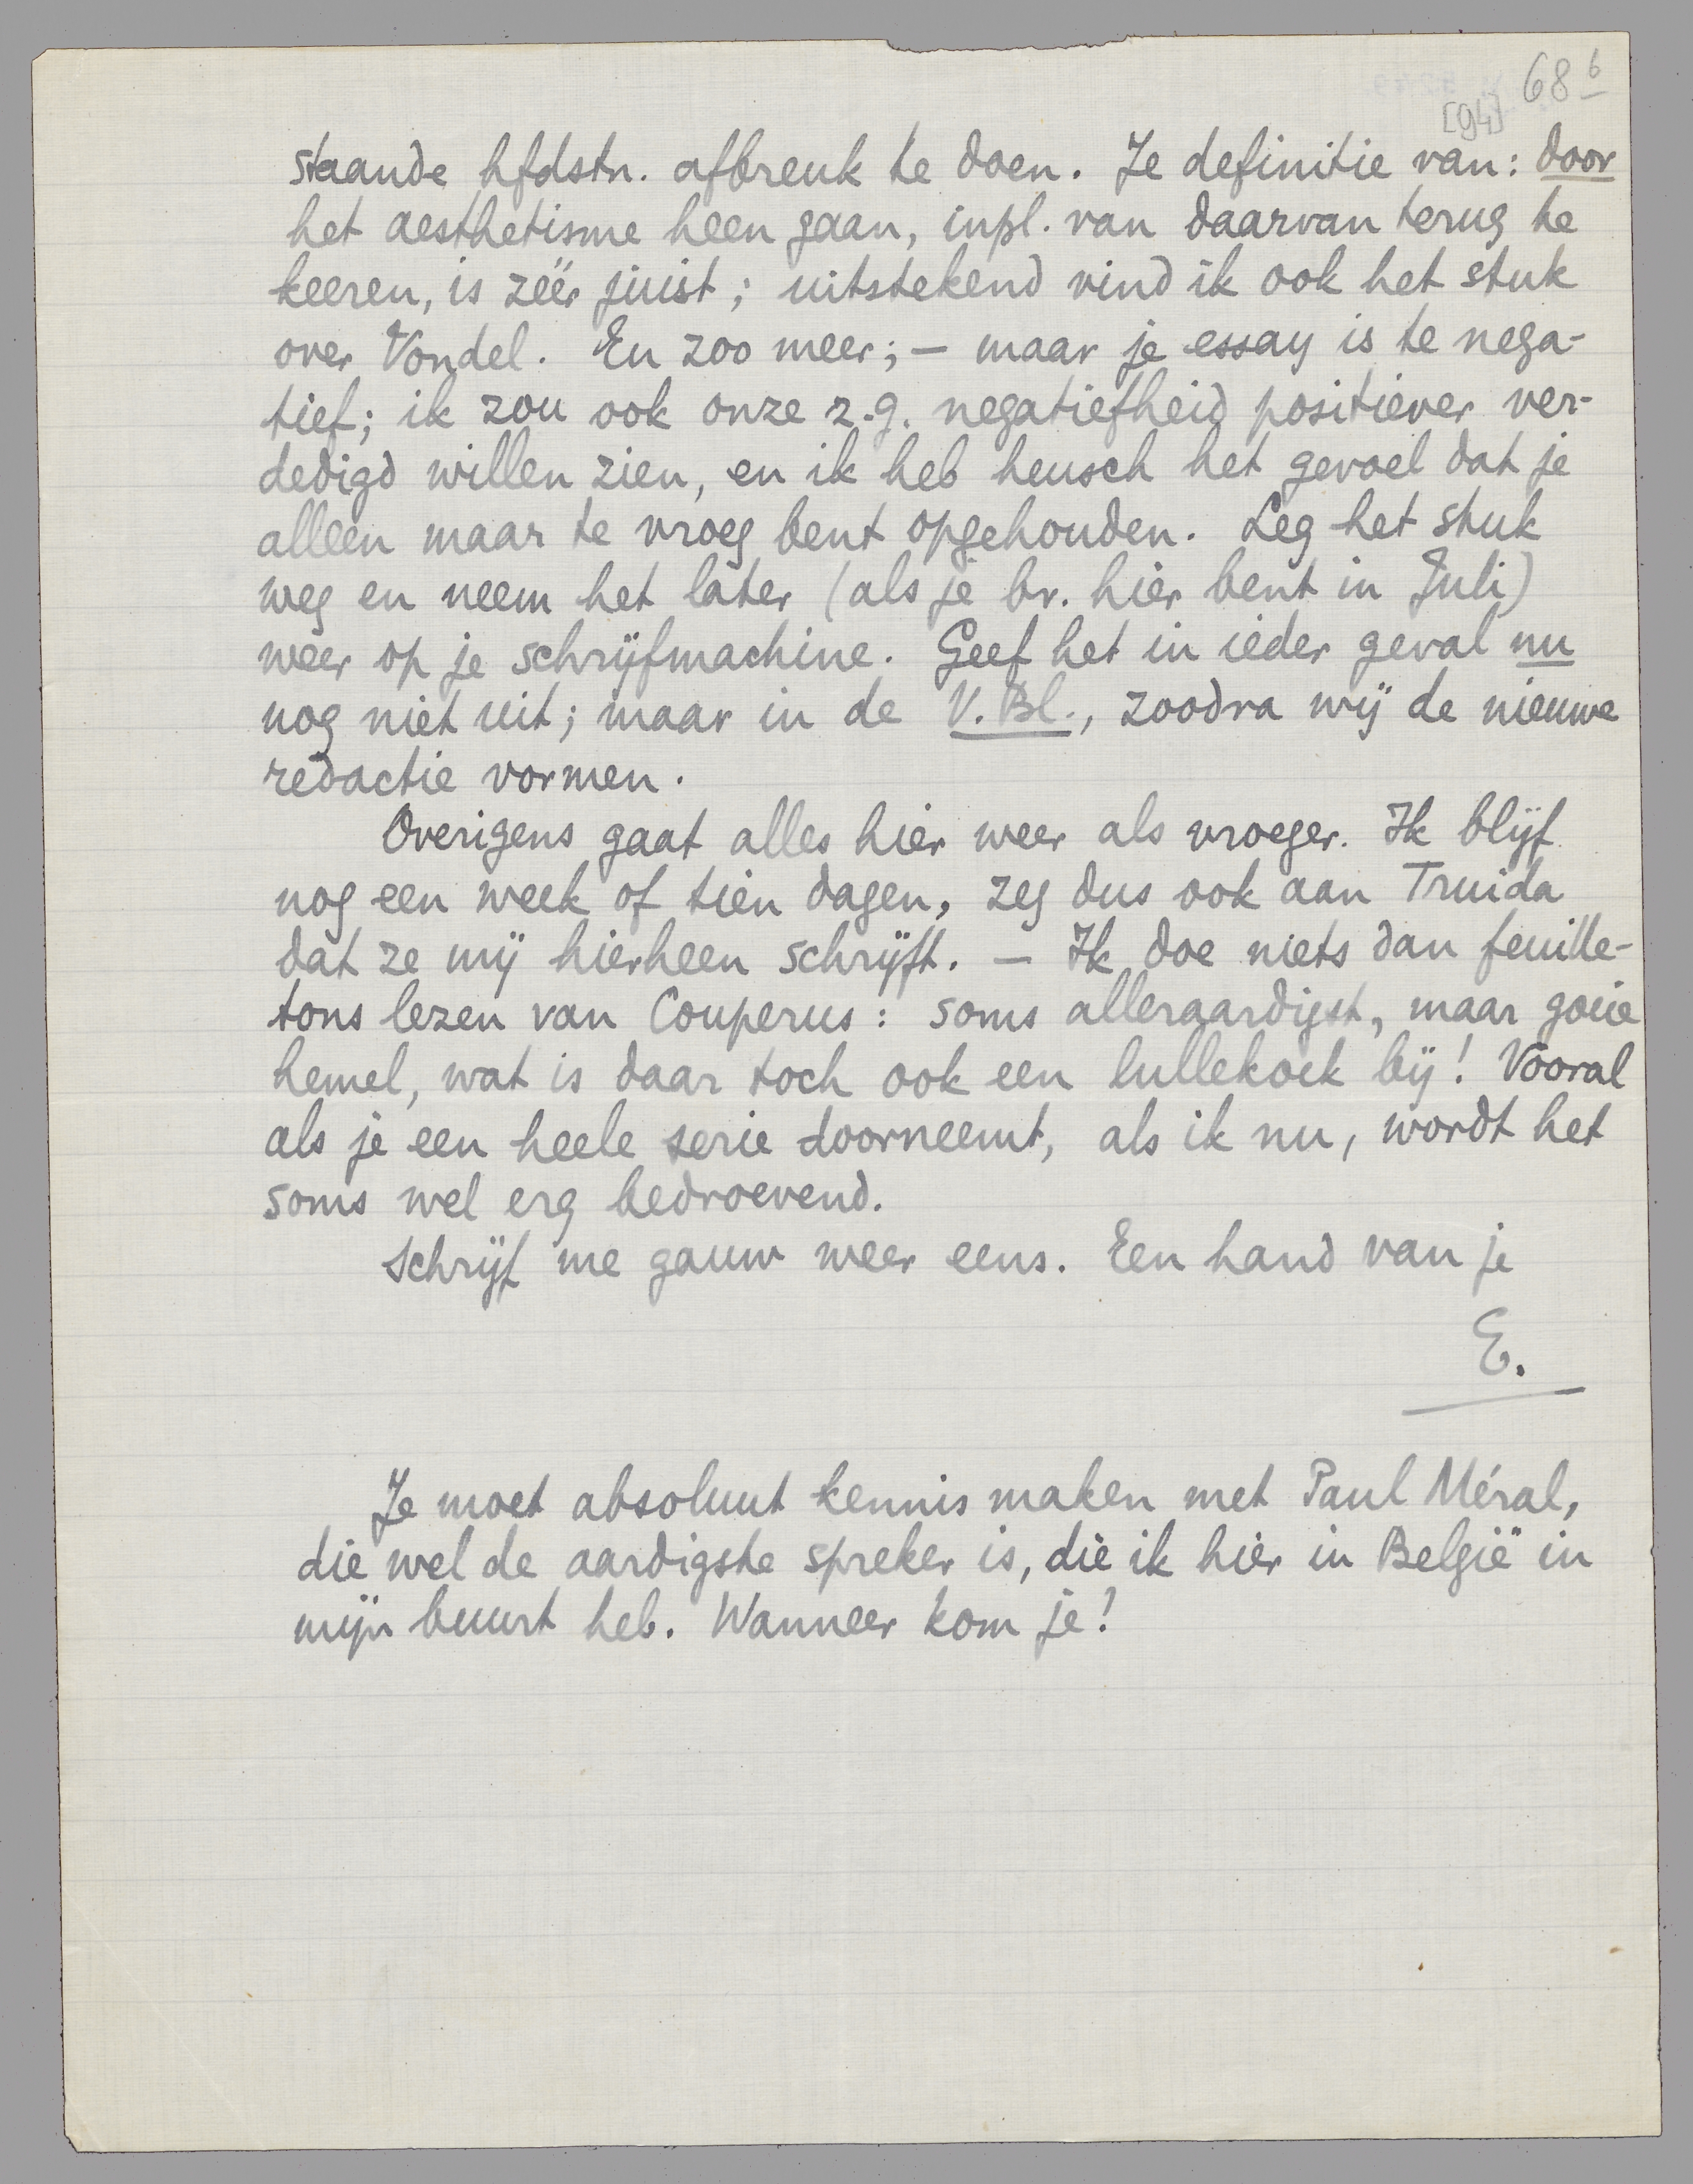 68 b
[94]
staande hfdstn. afbreuk te doen. Je definitie van: door
het aesthetisme heen gaan, inpl. van daarvan terug te
keeren, is zéér juist; uitstekend vind ik ook het stuk
over Vondel. En zoo meer; — maar je essay is te nega-
tief; ik zou ook onze z.g. negatiefheid positiever ver-
dedigd willen zien, en ik heb heusch het gevoel dat je
alleen maar te vroeg bent opgehouden. Leg het stuk
weg en neem het later (als je bv. hier bent in Juli)
weer op je schrijfmachine. Geef het in ieder geval nu
nog niet uit; maar in de V. Bl., zoodra wij de nieuwe
redactie vormen.
Overigens gaat alles hier weer als vroeger. Ik blijf
nog een week of tien dagen, zeg dus ook aan Truida
dat ze mij hierheen schrijft. — Ik doe niets dan feuille-
tons lezen van Couperus: soms alleraardigst, maar goeie
hemel, wat is daar toch ook een lullekoek bij! Vooral
als je een heele serie doorneemt, als ik nu, wordt het
soms wel erg bedroevend.
Schrijf me gauw weer eens. Een hand van je
E.
Je moet absoluut kennis maken met Paul Méral,
die wel de aardigste spreker is, die ik hier in België in
mijn buurt heb. Wanneer kom je!